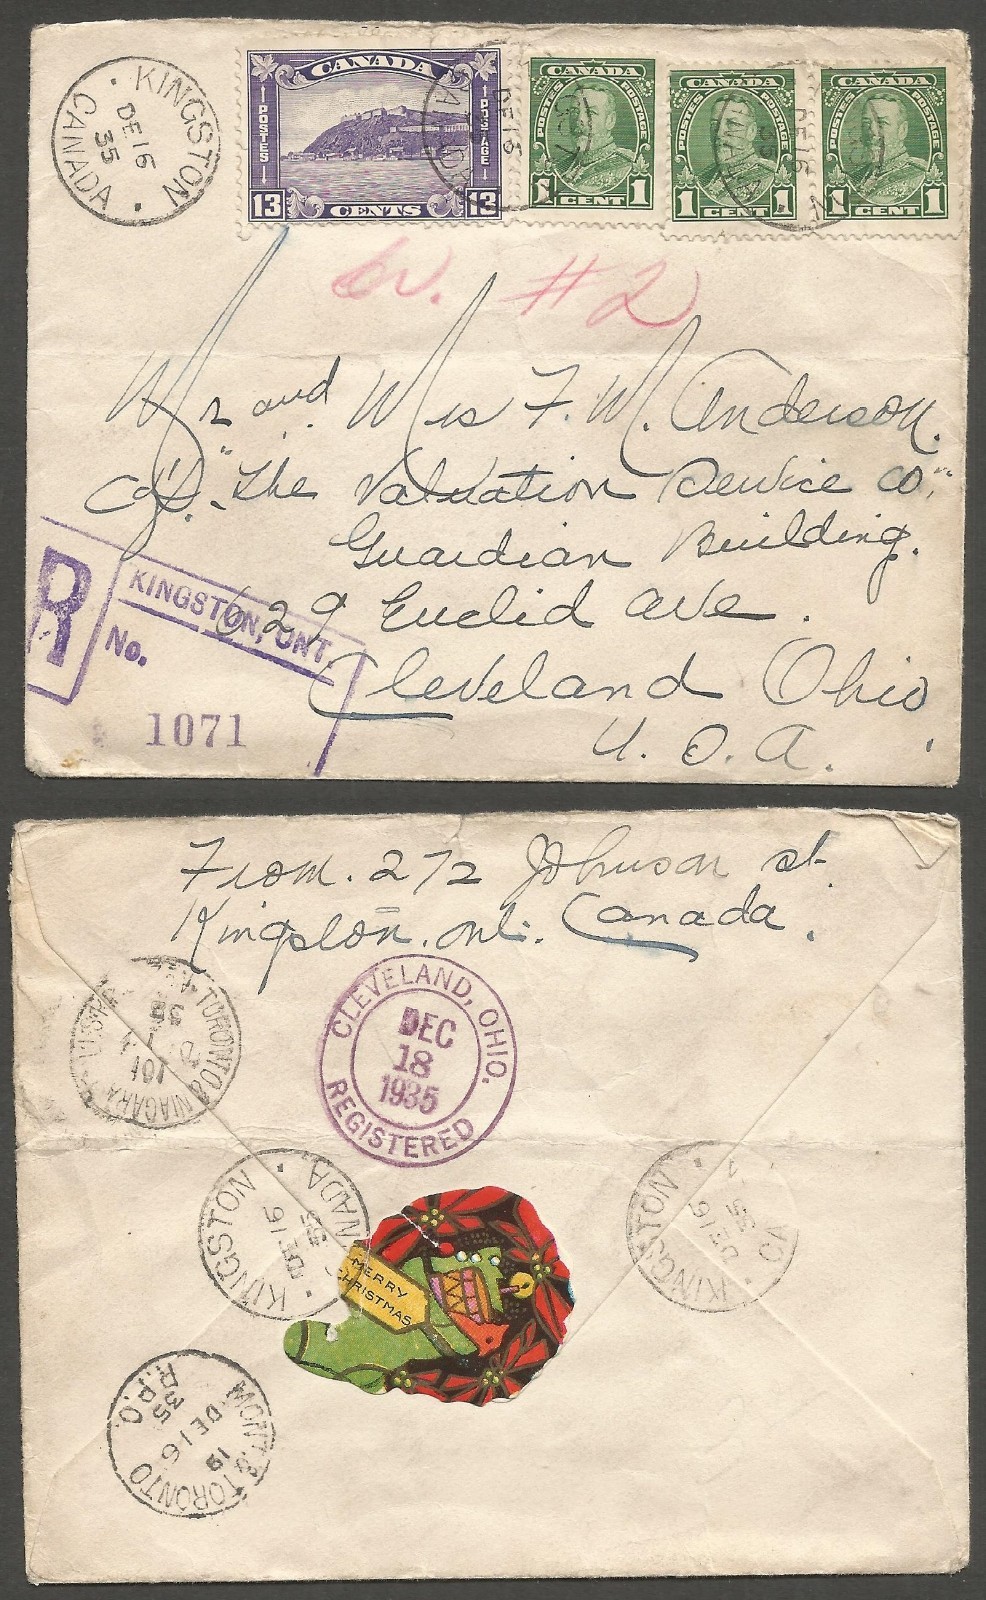 KINGSTON
DE 16
35
CANADA
CANADA
POSTES POSTAGE
13 CENTS 13
CANADA
POSTES POSTAGE
1 CENT 1
CANADA
POSTES POSTAGE
1 CENT 1
CANADA
POSTES POSTAGE
1 CENT 1
DE 16
DE 16
35
#2
Mr and Mrs F. M. Anderson.
"The Valuation Service Co."
Guardian Building.
629 Euclid Ave.
Cleveland Ohio
U.S.A.
R
KINGSTON, ONT.
No.
1071
From. 272 Johnson St.
Kingston. Ont. Canada.
TORONTO & NIAGARA
CLEVELAND, OHIO.
DEC
18
1935
REGISTERED
KINGSTON
DE 16
35
NADA
KINGSTON
DE 16
35
CA
MERRY
CHRISTMAS
MONT. & TORONTO
19
DE 16
35
R.P.O.